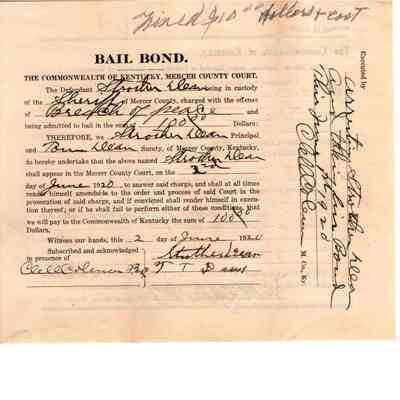 Fined $10 00 Dollars & cost
BAIL BOND.
THE COMMONWEALTH OF KENTUCKY, MERCER COUNTY COURT.
The Defendant Strother Dean being in custody
of the Sheriff of Mercer County, charged with the offense
of Breach of peace and
being admitted to bail in the sum of 100 00 Dollars:
THEREFORE, we Strother Dean Principal,
and Dean Surety, of Mercer County, Kentucky,
do hereby undertake that the above named Strother Dean
shall appear in the Mercer County Court, on the 2nd
day of June 1920 to answer said charge, and shall at all times
render himself amendable to the order and process of said Court in the
prosecution of said charge, and if convicted shall render himself in execu-
tion thereof; or if he shall fail to perform either of these conditions, that
we will pay to the Commonwealth of Kentucky the sum of 100 00
Dollars.
Witness our hands, this 2 day of June 1920
Subscribed and acknowledged
in presence of
Strother Dean
Clell Coleman
T T Dean
Executed by
Strother Dean
Bond
This June 1920
Clell Coleman
M. Co., Ky.